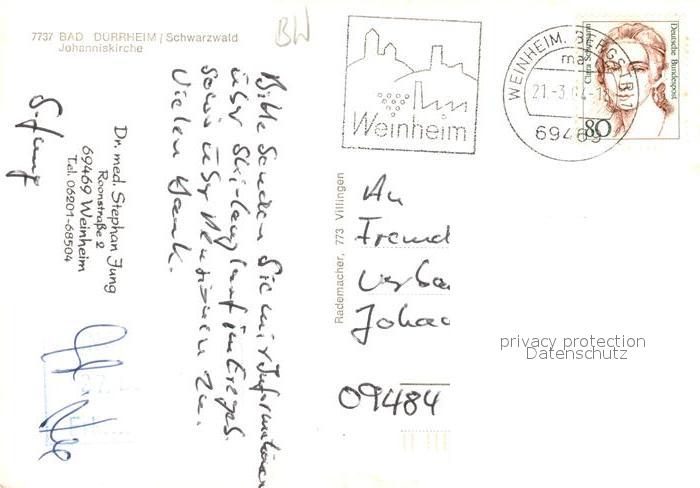 7737 BAD DÜRRHEIM / Schwarzwald
Johanniskirche
BW
Bitte senden Sie mir Informationen
über Skilanglauf im Erzgeb.
sowie über Pensionen zu.
Vielen Dank.
S. Jung
Dr. med. Stephan Jung
Roonstraße 2
69469 Weinheim
Tel. 06201-68504
Rademacher, 773 Villingen
Weinheim
WEINHEIM, BERGSTR
ma
21.-3.
69469
Deutsche Bundespost
Clara Schumann
80
An
Fremd
verba
Johan
09484
privacy protection
Datenschutz